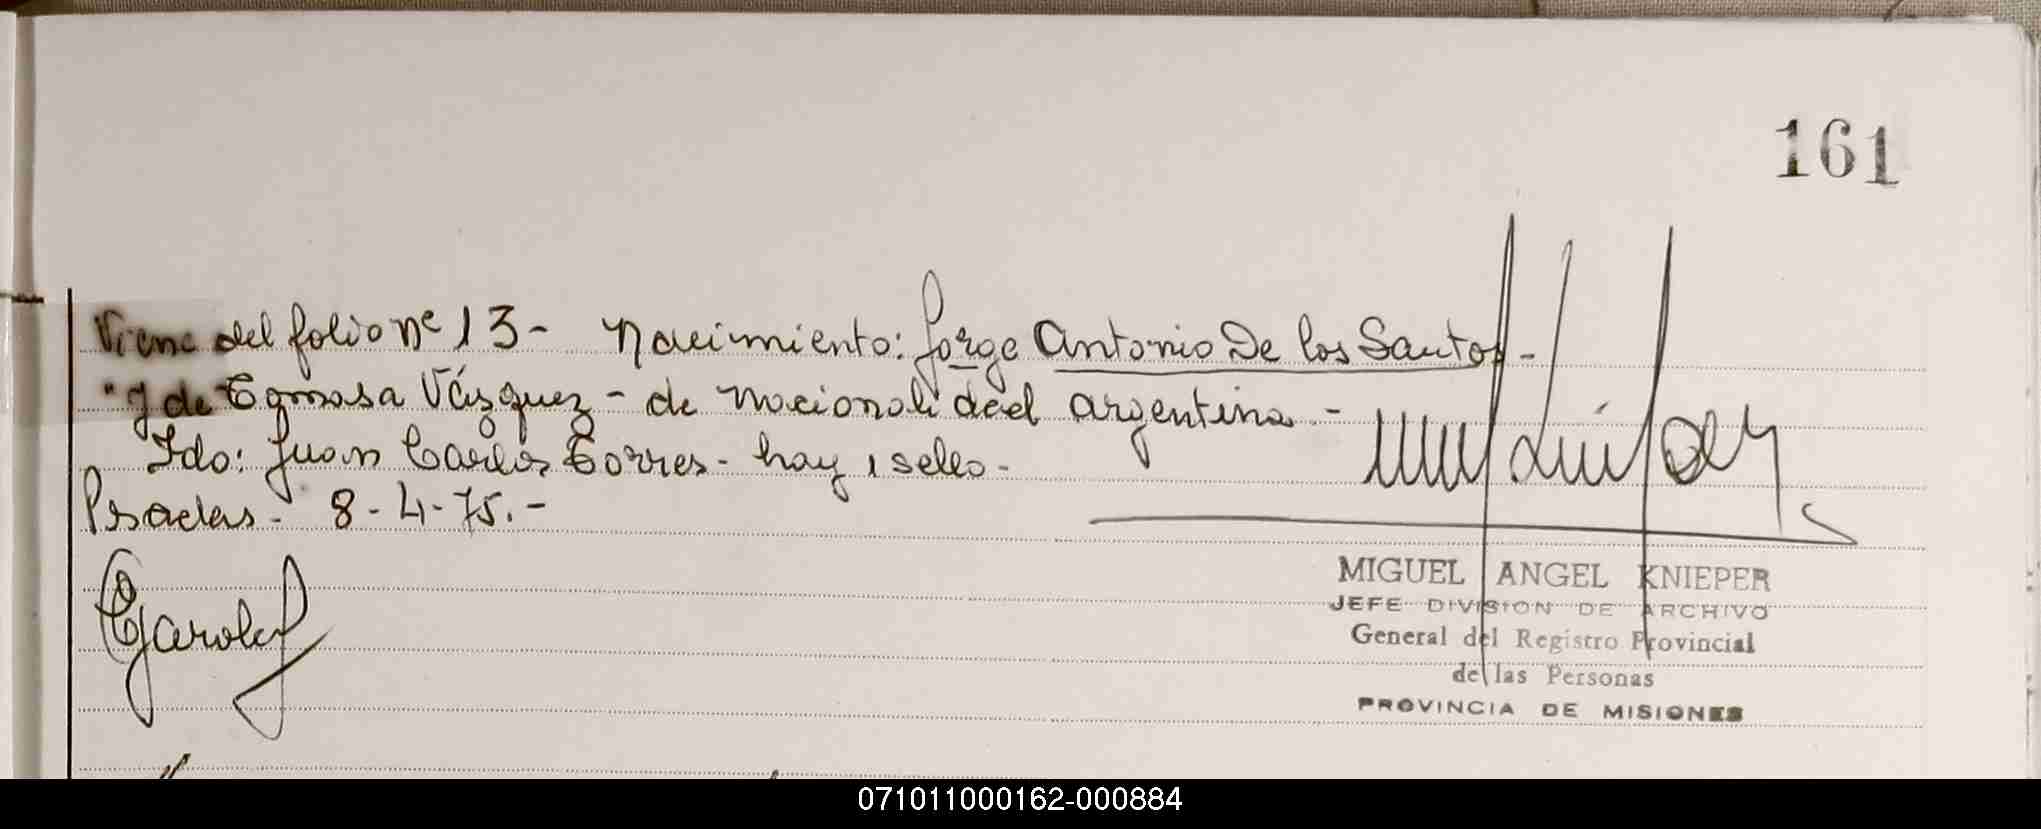 161
Viene del folio Nº 13 - Nacimiento: Jorge Antonio De los Santos -
"y de Tomasa Vázquez - de nacionalidad argentina -
Fdo: Juan Carlos Torres - hay 1 sello -
Posadas - 8 - 4 - 75. -
MIGUEL ANGEL KNIEPER
JEFE DIVISION DE ARCHIVO
General del Registro Provincial
de las Personas
PROVINCIA DE MISIONES
071011000162-000884